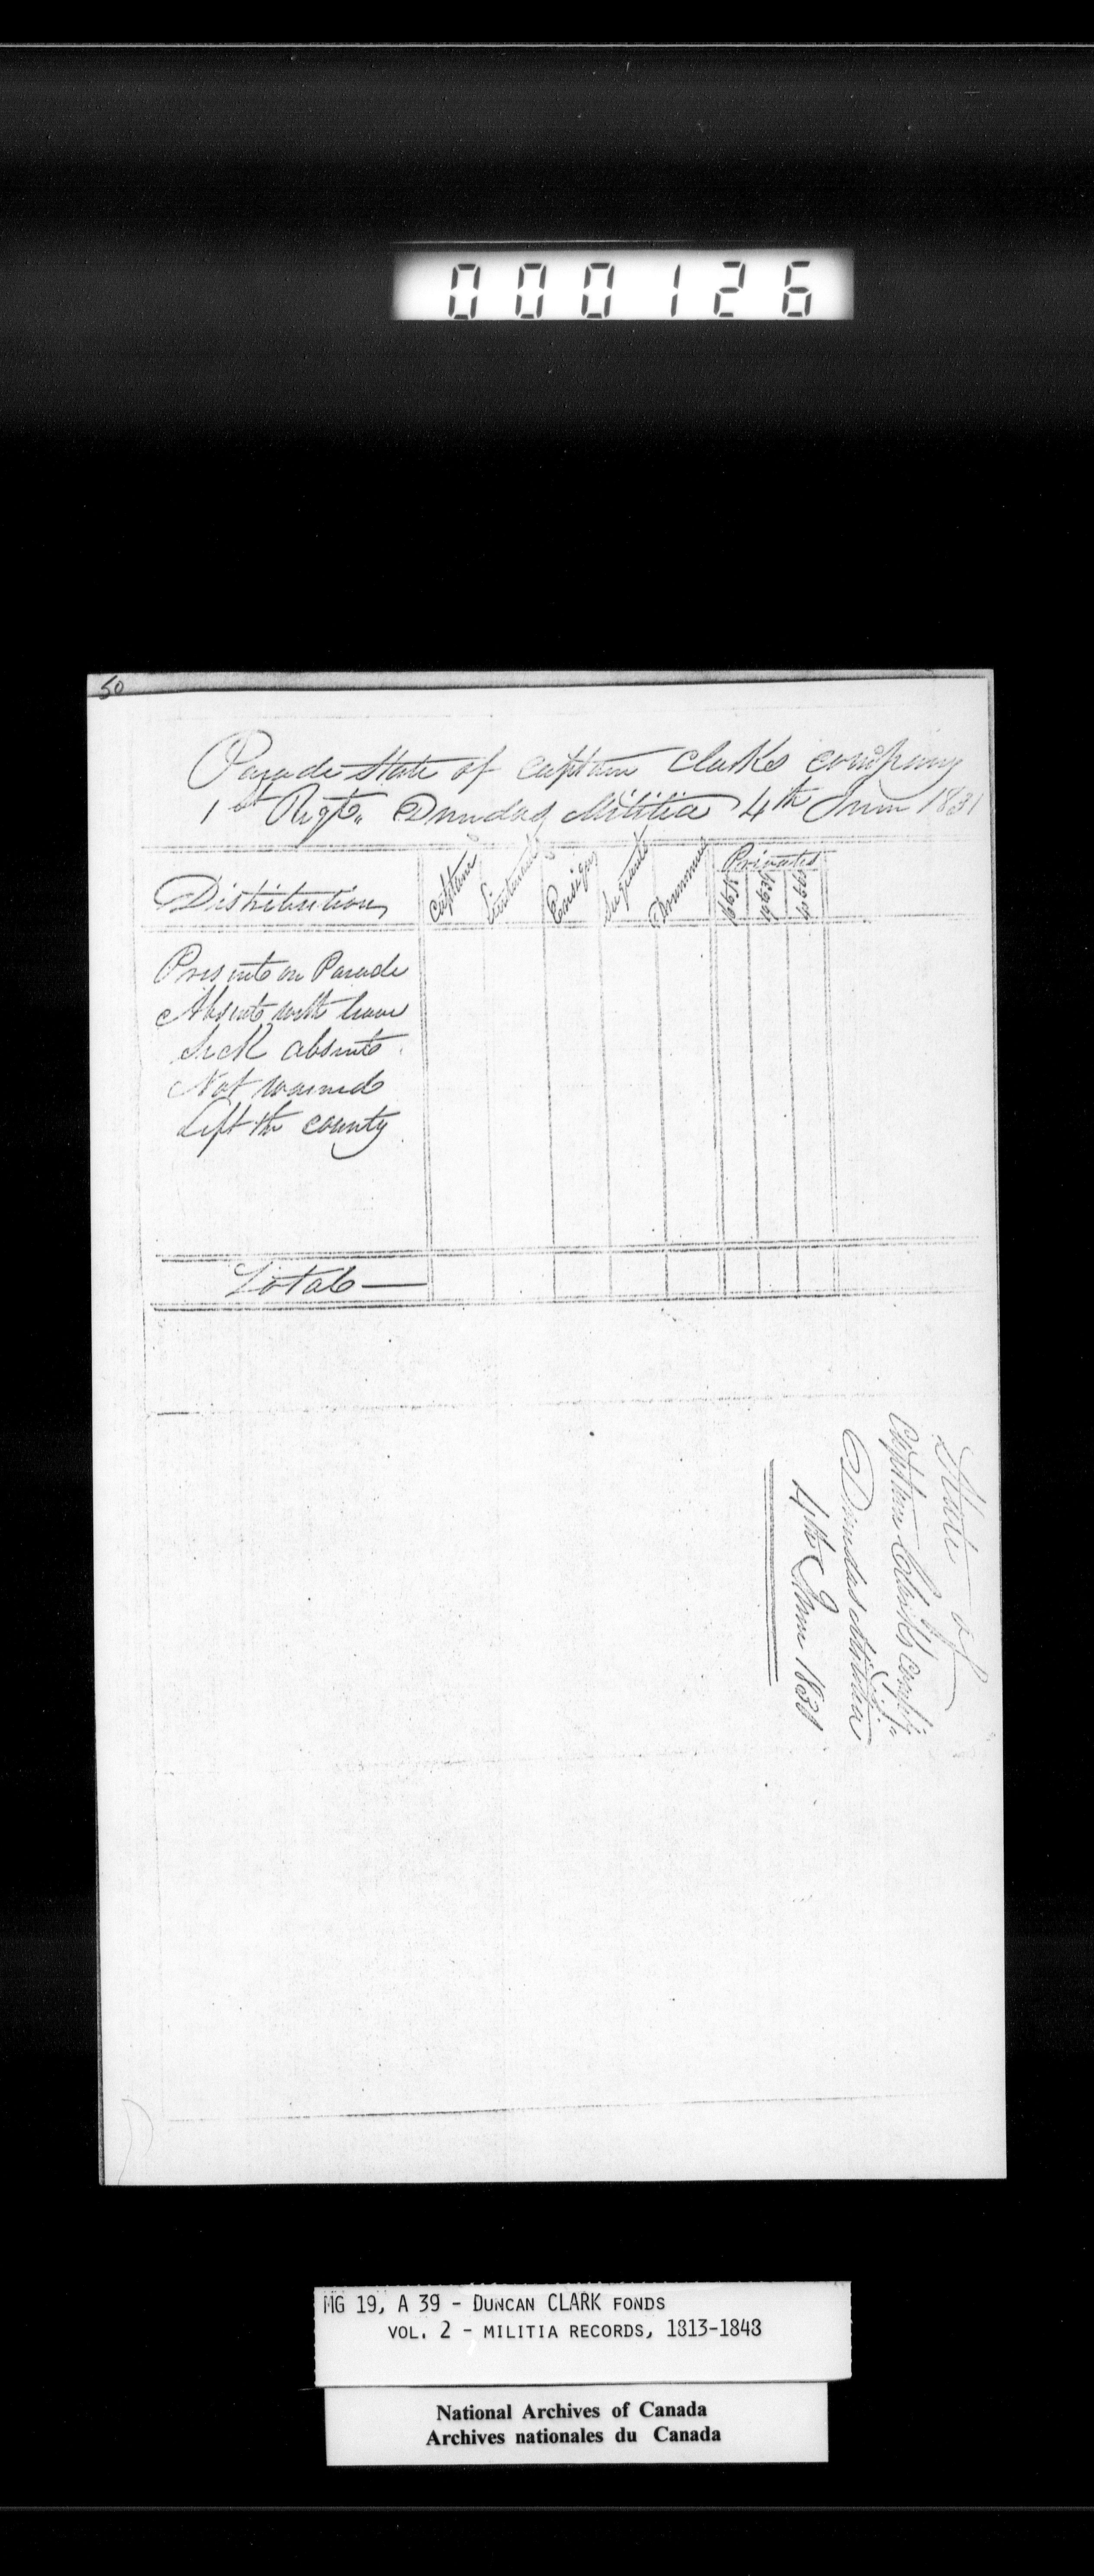 000126
50
Parade State of Captain Clarks company
1st Regt. Dundas Militia 4th June 1831
Distribution Captains Lieutenants Ensigns Sergeants Drummer Privates
Presents on Parade
Absents with leave
Sick absents
Not warned
Left the county
Total
State of
Captain Clarks Compy
Dundas Militia
4th June 1831
MG 19, A 39 - DUNCAN CLARK FONDS
VOL. 2 - MILITIA RECORDS, 1813-1848
National Archives of Canada
Archives nationales du Canada